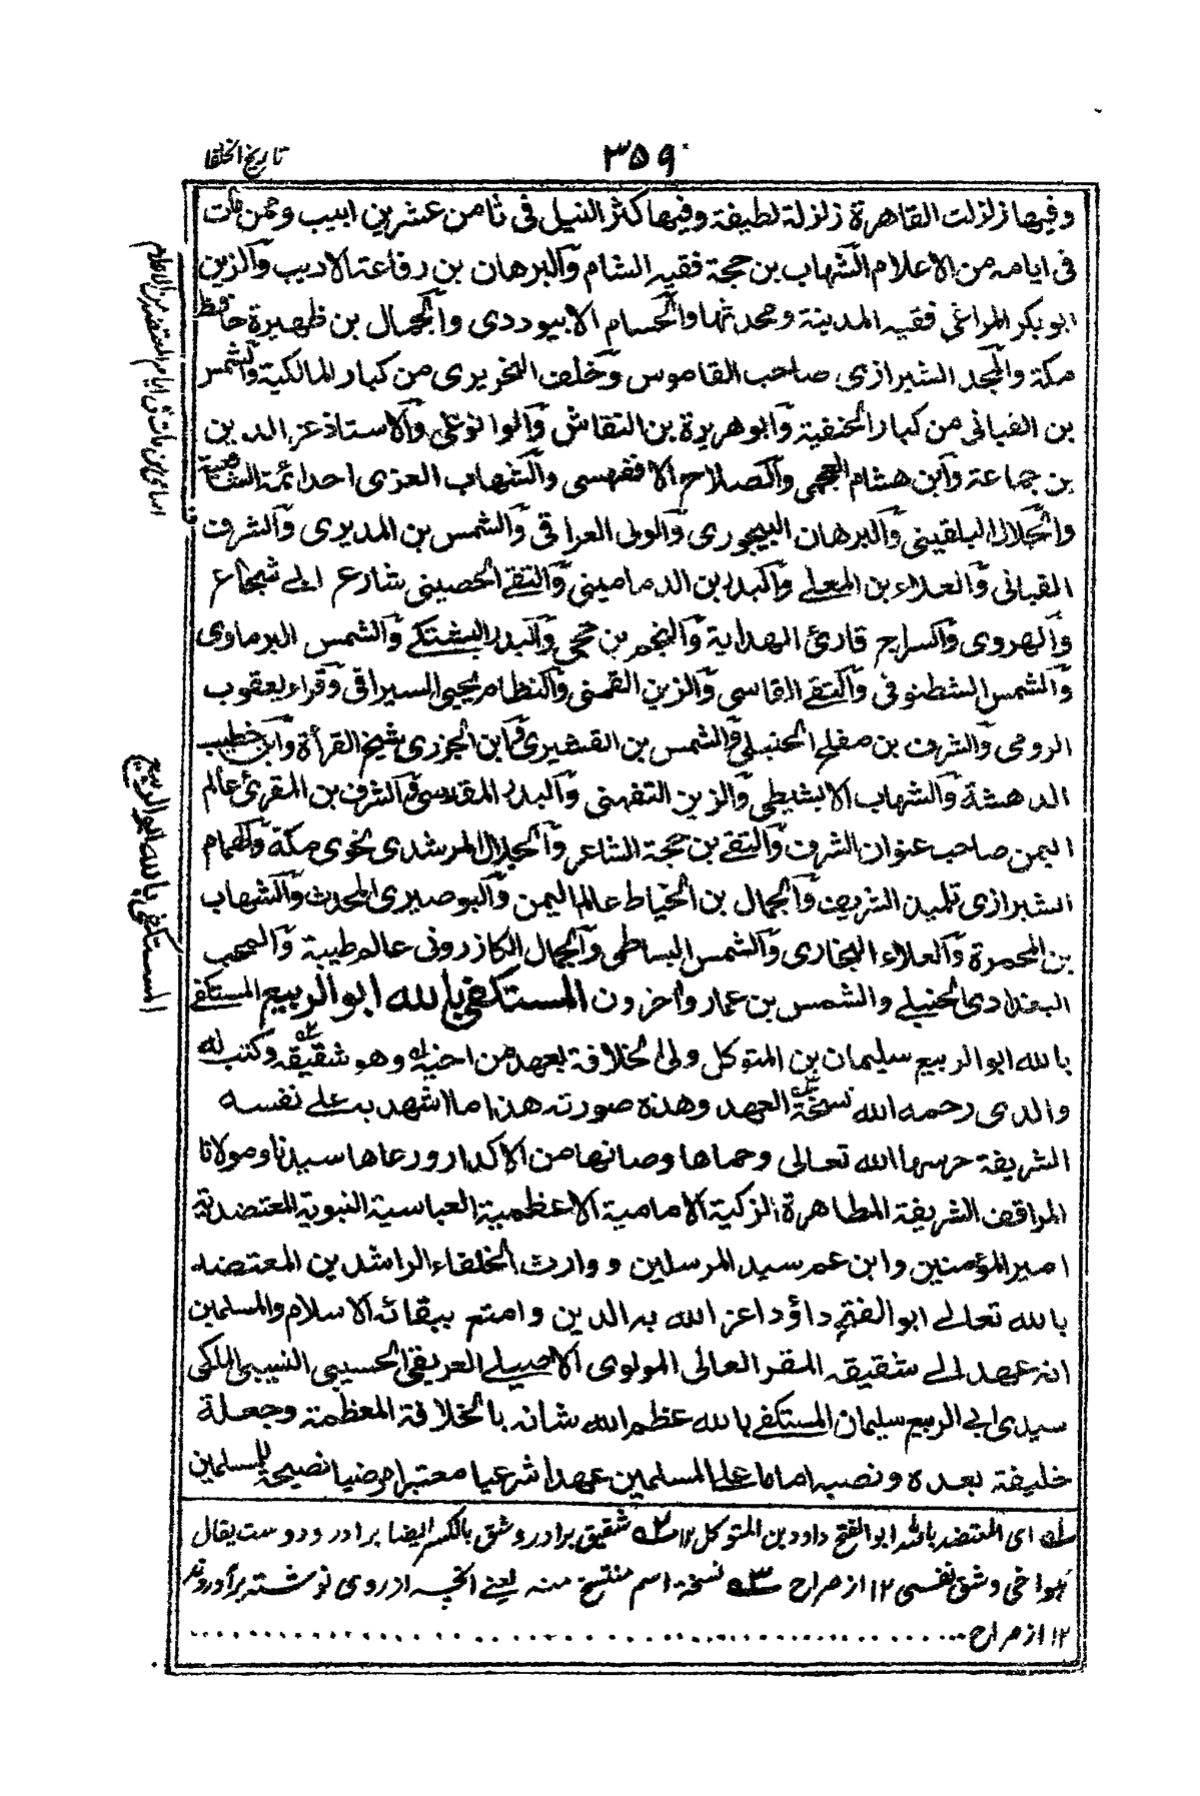 ٣٥٩
تاريخ الخلفا
وفيها زلزلت القاهرة زلزلة لطيفة وفيها كثر النيل فى ثامن عشرين ابيب وممن مات
فى ايامه من الاعلام الشهاب بن حجة فقيه الشام والبرهان بن رفاعة الاديب والزين
ابوبكر المراغى فقيه المدينة ومحدثها والحسام الابيوردى والجمال بن ظهيرة حافظ
مكة والمجد الشيرازى صاحب القاموس وخلف النحريرى من كبار المالكية والشمس
بن القبانى من كبار الحنفية وابوهريرة بن النقاش والوانوغى والاستاذ عز الدين
بن جماعة وابن هشام العجمى والصلاح الاقفهسى والشهاب العزى احد ائمة الشافعية
والجلال البلقينى والبرهان البيجورى والولى العراقى والشمس بن المديرى والشرف
القبانى والعلاء بن المعلى والبدر بن الدمامينى والتقى الحصينى شارع ابى شجاع
والهروى والسراج قارئ الهداية والنجم بن حجى والبدر البشتكى والشمس البرماوى
والشمس الشطنوفى والتقى القاسى والزين القمنى والنظام يحيى السيرافى وقراء يعقوب
الرومى والشرف بن مفلح الحنبلى والشمس بن القشيرى وابن الجزرى شيخ القرأة وابن خطيب
الدهشة والشهاب الابشيطى والزين التفهنى والبدر المقدسى والشرف بن المقرئ عالم
اليمن صاحب عنوان الشرف والتقى بن حجة الشاعر والجلال المرشدى نحوى مكة والهمام
الشيرازى تلميذ الشريف والجمال بن الخياط عالم اليمن والبوصيرى المحدث والشهاب
بن المحمرة والعلاء البخارى والشمس البساطى والجمال الكازرونى عالم طيبة والمحب
البغدادى الحنبلى والشمس بن عمار وآخرون المستكفى بالله ابو الربيع المستكفى
بالله ابو الربيع سليمان بن المتوكل ولى الخلافة بعهد من اخيه له وهو شقيقه وكتب له
والدى رحمه الله نسخة العهد وهذه صورته هذا ما اشهد به على نفسه
الشريفة حرسها الله تعالى وحماها وصانها من الاكدار ورعاها سيدنا ومولانا
المواقف الشريفة المطاهرة الزكية الامامية الاعظمية العباسية النبوية المعتضدية
امير المؤمنين وابن عم سيد المرسلين ووارث الخلفاء الراشدين المعتضد
بالله تعالى ابو الفتح داؤد اعز الله به الدين وامتع ببقائه الاسلام والمسلمين
انه عهد الى شقيقه المقر العالى المولوى الاصيلى العريقى الحسيبى النسيبى الملكى
سيدى ابى الربيع سليمان المستكفى بالله عظم الله شانه بالخلافة المعظمة وجعله
خليفة بعده ونصبه اماما على المسلمين عهدا شرعيا معتبرا مرضيا نصيحة للمسلمين
له اى المعتضد بالله ابو الفتح داود بن المتوكل ١٢ ٢ه شقيق برادر وشق بالكسر ايضا برادر ودوست يقال
هو اخى وشق نفسى ١٢ از صراح ٣ه نسخة اسم منتسخ منه يعنى آنچه از روى نوشته برآورند
١٢ از صراح
اسامى من مات فى ايام المعتضد من الاعلام
المستكفى بالله ابو الربيع